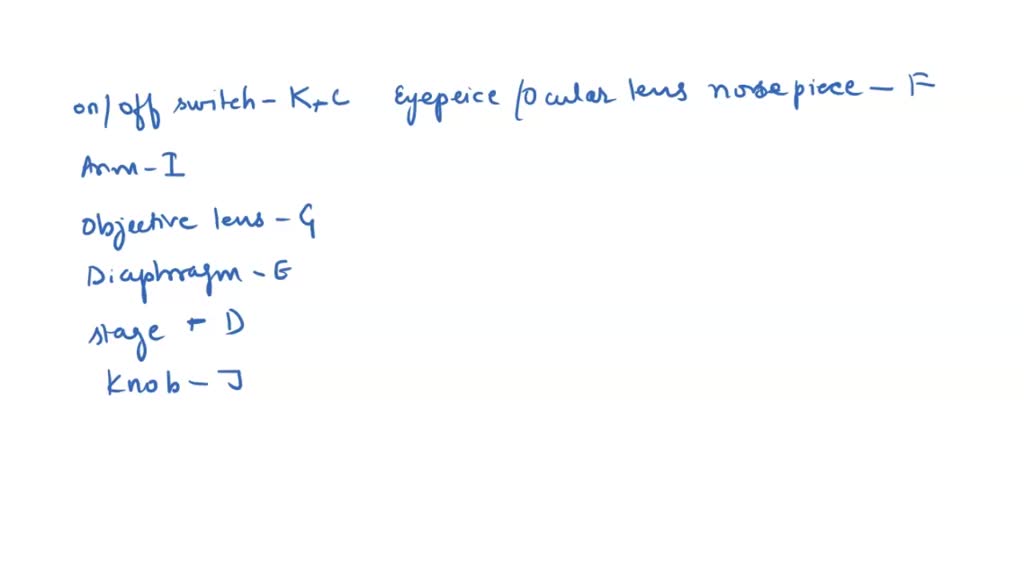 on/off switch - K,C Eyepeice/Ocular lens nosepiece - F
Arm - I
Objective lens - G
Diaphragm - E
stage - D
Knob - J